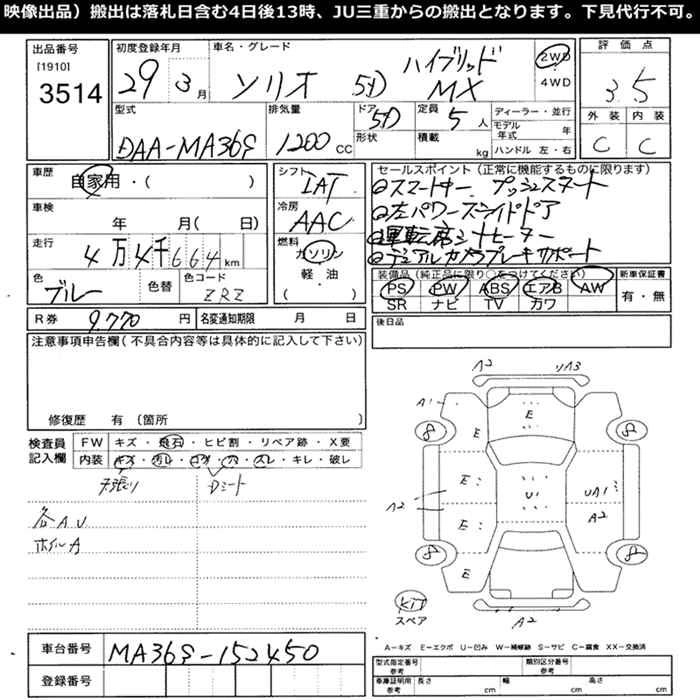 映像出品）搬出は落札日含む4日後13時、JU三重からの搬出となります。下見代行不可。
出品番号
[1910]
3514
初度登録年月
29 3 月
車名・グレード
ソリオ 5D ハイブリッド MX
2WD
4WD
評価点
3.5
外装 内装
C C
型式
DAA-MA36S
排気量
1200 CC
ドア 5D
形状
定員 5 人
積載 kg
ディーラー・並行
モデル年式 年
ハンドル 左・右
車歴
自家用・( )
車検
年 月( 日)
走行
4万4千664 km
色
ブルー
色替
色コード
ZRZ
シフト
IAT
冷房
AAC
燃料
ガソリン
軽・油
( )
セールスポイント（正常に機能するものに限ります）
①スマートキー プッシュスタート
②左パワースライドドア
③運転席シートヒーター
④デュアルカメラブレーキサポート
装備品（純正品に限り○をつけてください）
PS PW ABS エアB AW
SR ナビ TV カワ
新車保証書
有・無
R券 9,770 円
名変通知期限 月 日
後日品
注意事項申告欄（不具合内容等は具体的に記入して下さい）
修復歴 有（箇所 ）
検査員記入欄
FW キズ・飛石・ヒビ割・リペア跡・X要
内装 キズ・汚レ・コゲ・穴・スレ・キレ・破レ
天張り Dシート
各AU
ホイルA
A2 UA3
A1
E
8 E 8
A2 E U1 UA1
E A2
8 8
E
kit
スペア
A2
A—キズ E—エクボ U—凹み W—補修跡 S—サビ C—腐食 XX—交換済
車台番号 MA36S-152450
登録番号
型式指定番号 参考
類別区分番号 参考
車庫証明用 参考 長さ cm 幅 cm 高さ cm